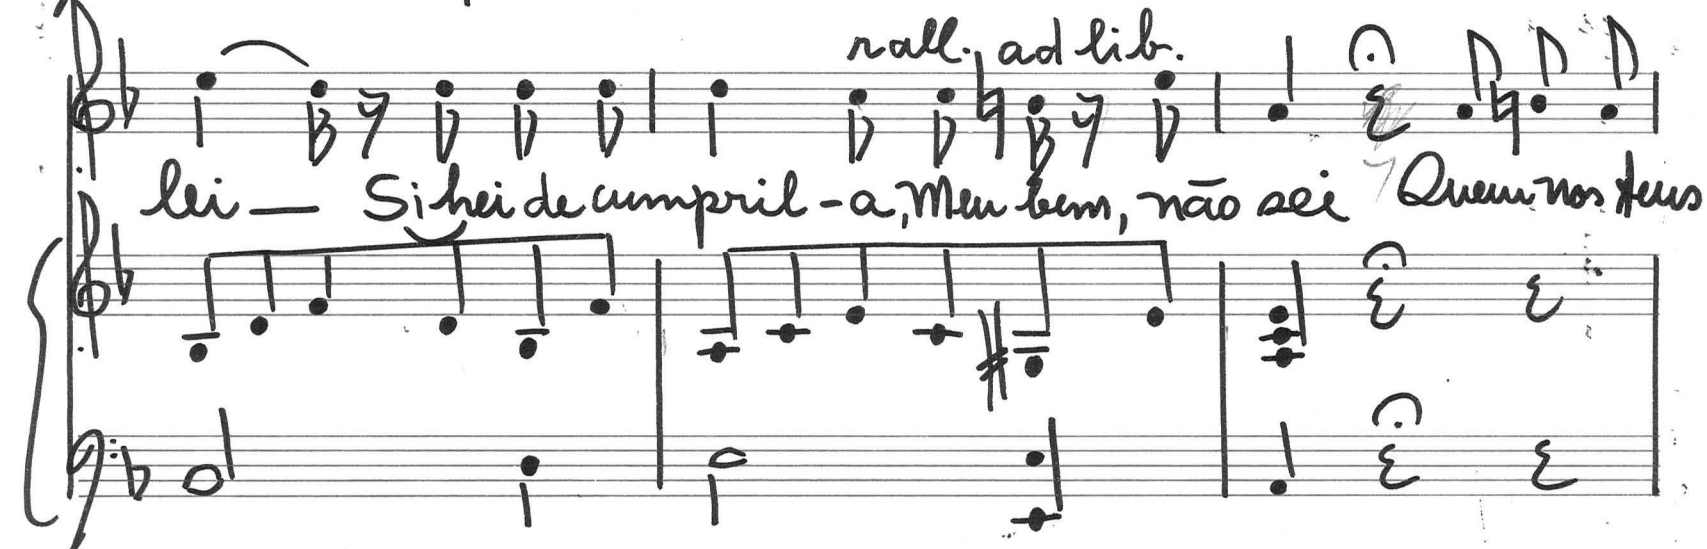 rall. ad lib.
lei — Si hei de cumpril-a, Meu bem, não sei Quem nos teus